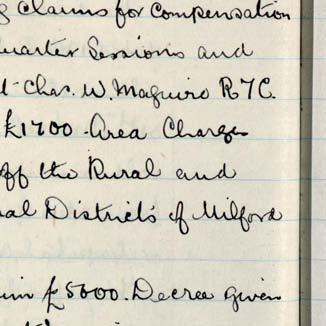 g Claims for Compensation
Quarter Sessions and
t Chas. W. Maguire R.I.C.
£1700 Area Charge
off the Rural and
al Districts of Milford
aim £5000. Decree given